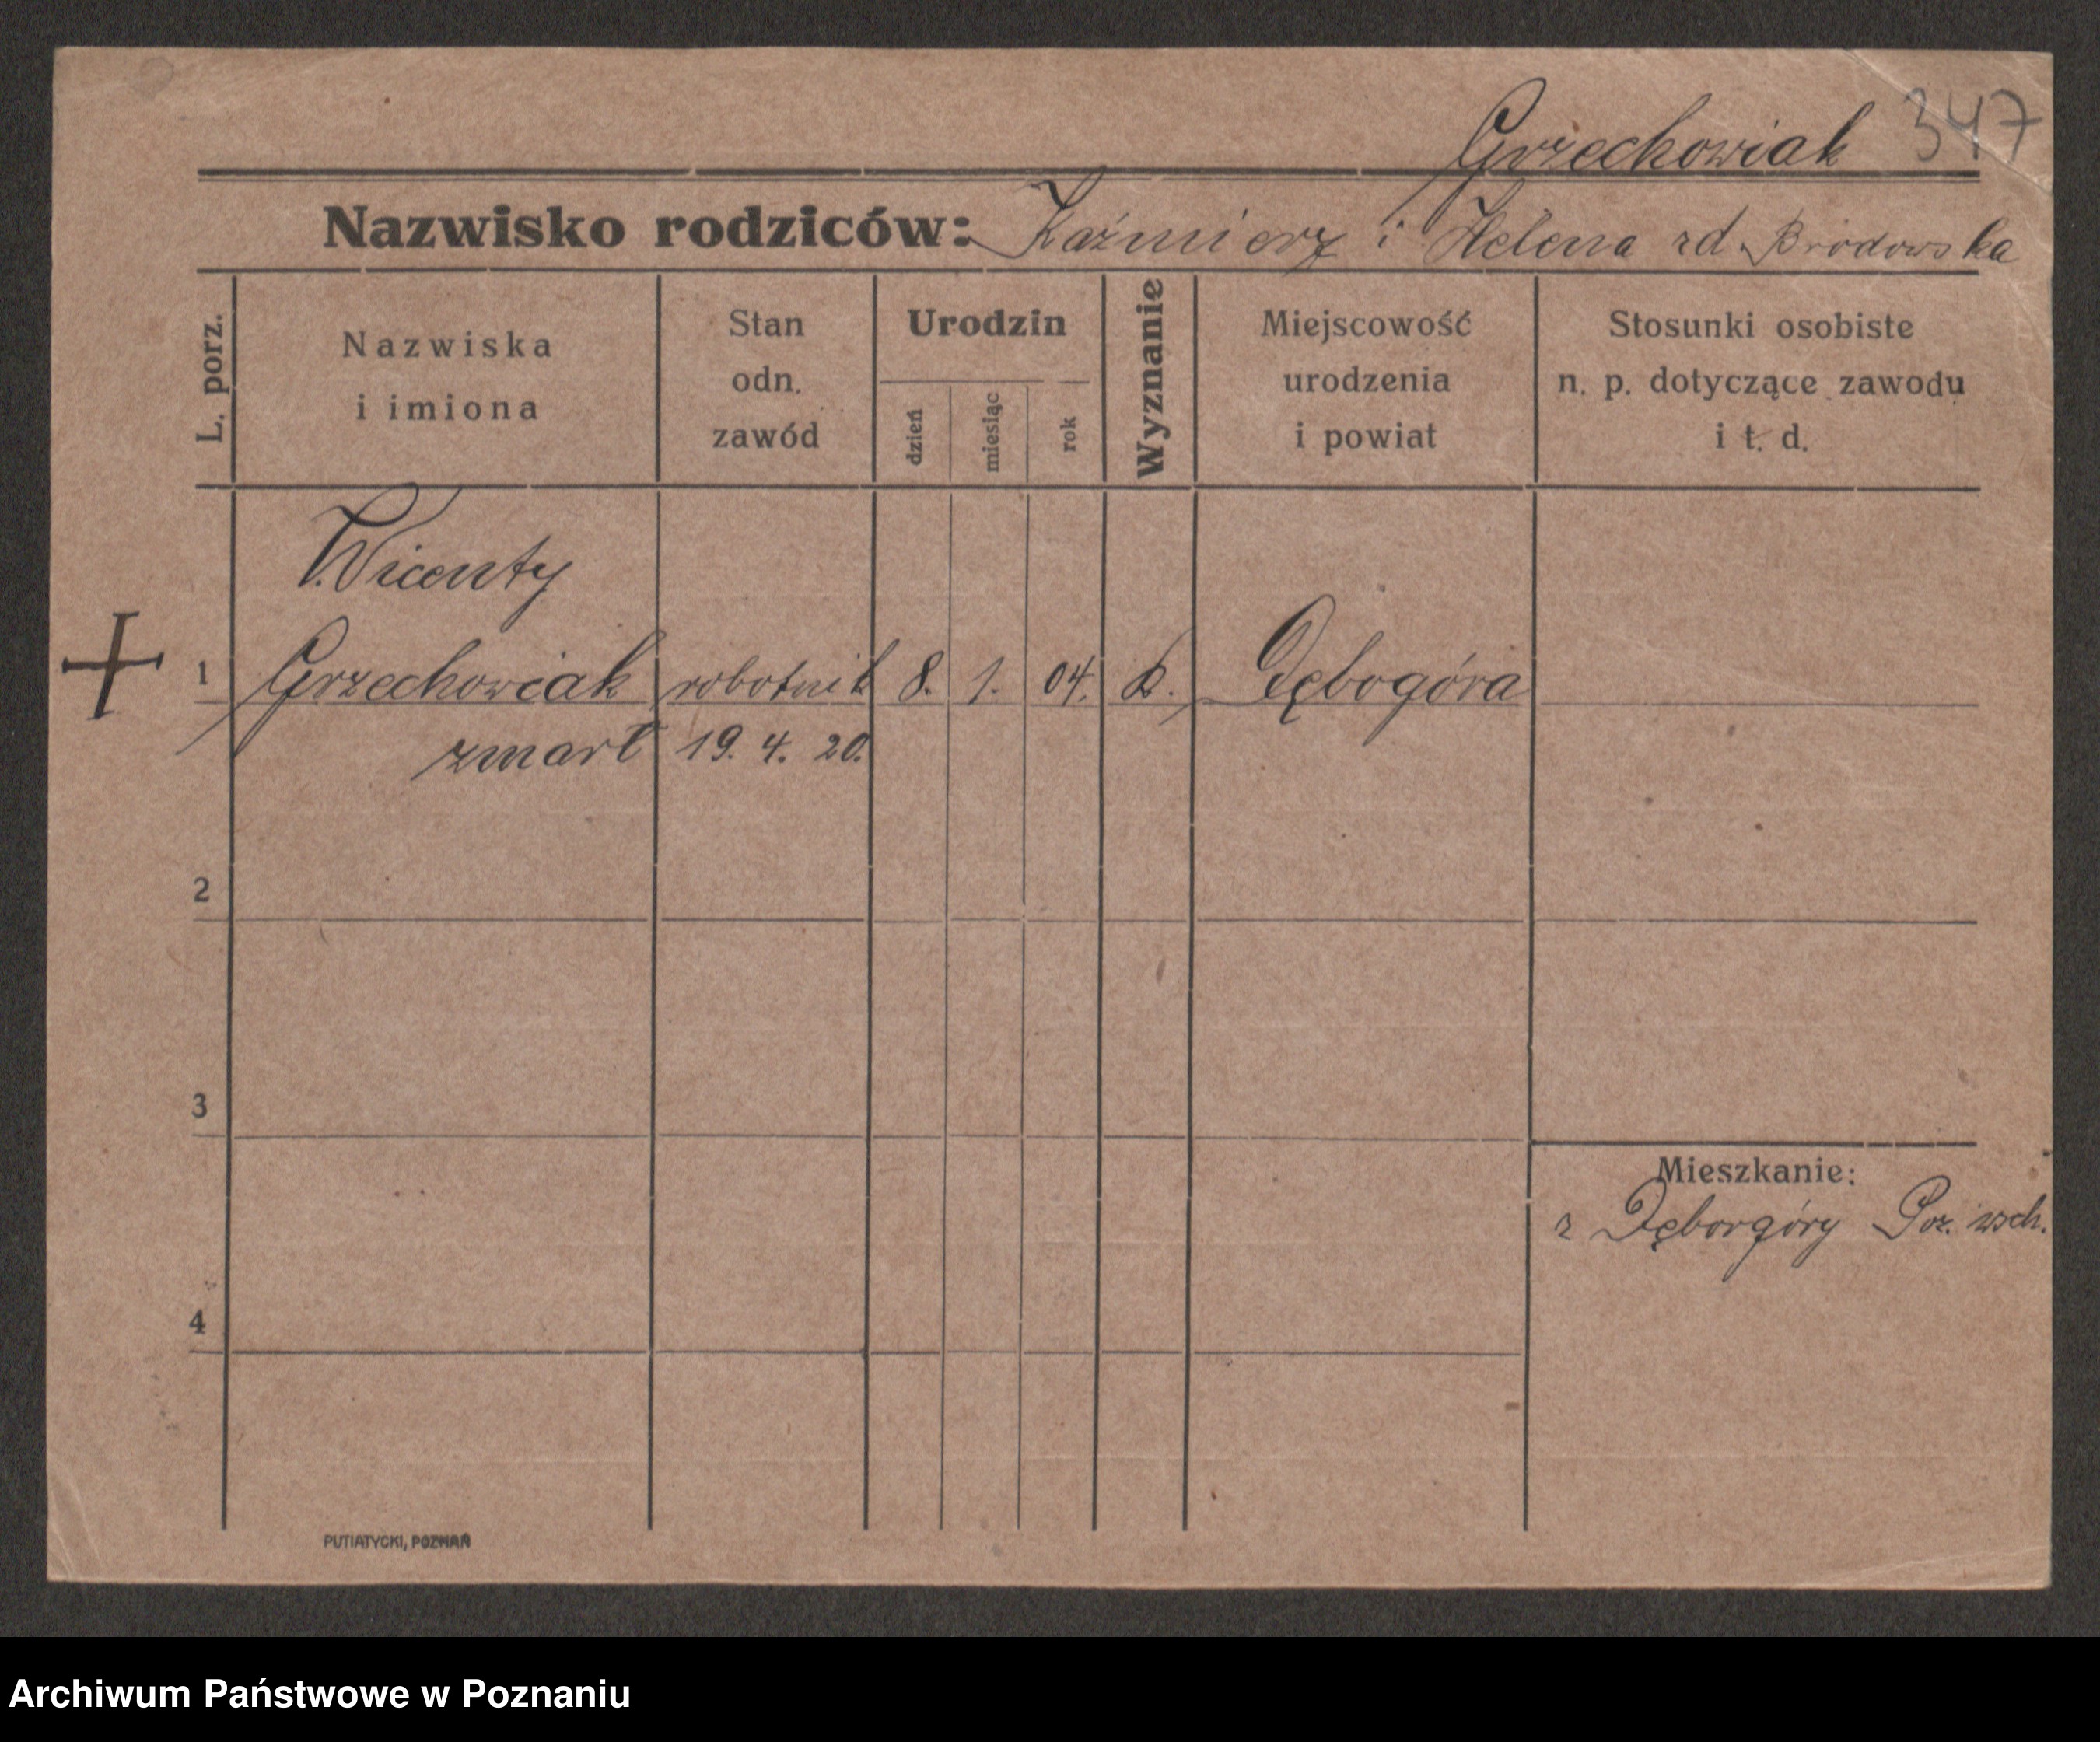 Grzechowiak 347
Nazwisko rodziców: Kaźmierz i Helena rd. Brodowska
L. porz.
Nazwiska
i imiona
Stan
odn.
zawód
Urodzin
dzień
miesiąc
rok
Wyznanie
Miejscowość
urodzenia
i powiat
Stosunki osobiste
n. p. dotyczące zawodu
i t. d.
Wicenty
1 Grzechowiak robotnik 8. 1. 04. k. Dębogóra
zmarł 19. 4. 20.
2
3
Mieszkanie:
z Dęborgóry Poz. wsch.
4
PUTIATYCKI, POZNAŃ
Archiwum Państwowe w Poznaniu